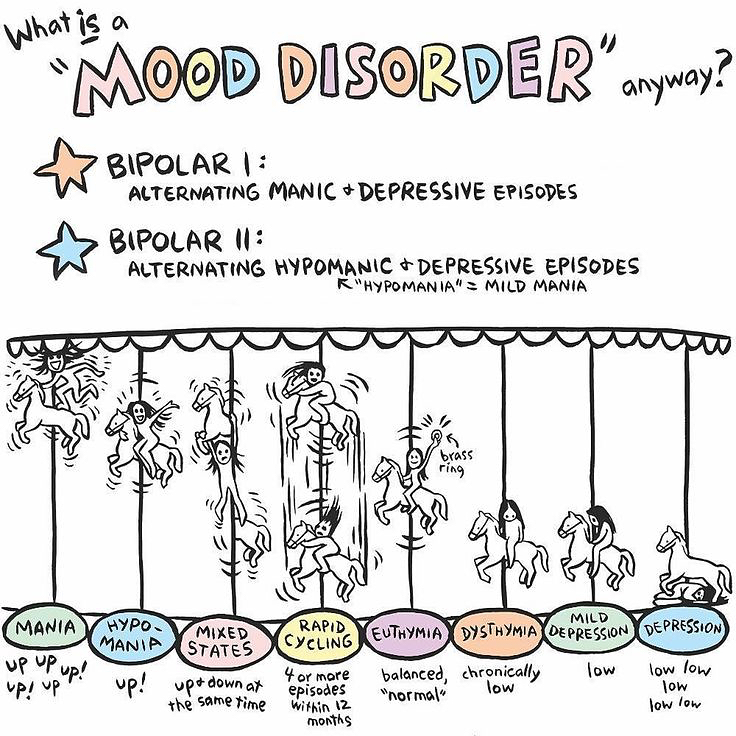 What is a
"MOOD DISORDER" anyway?
BIPOLAR I:
ALTERNATING MANIC + DEPRESSIVE EPISODES
BIPOLAR II:
ALTERNATING HYPOMANIC + DEPRESSIVE EPISODES
"HYPOMANIA" = MILD MANIA
brass
ring
MANIA
up up up!
up! up
HYPO-
MANIA
up!
MIXED
STATES
up + down at
the same time
RAPID
CYCLING
4 or more
episodes
within 12
months
EUTHYMIA
balanced,
"normal"
DYSTHYMIA
chronically
low
MILD
DEPRESSION
low
DEPRESSION
low low
low
low low